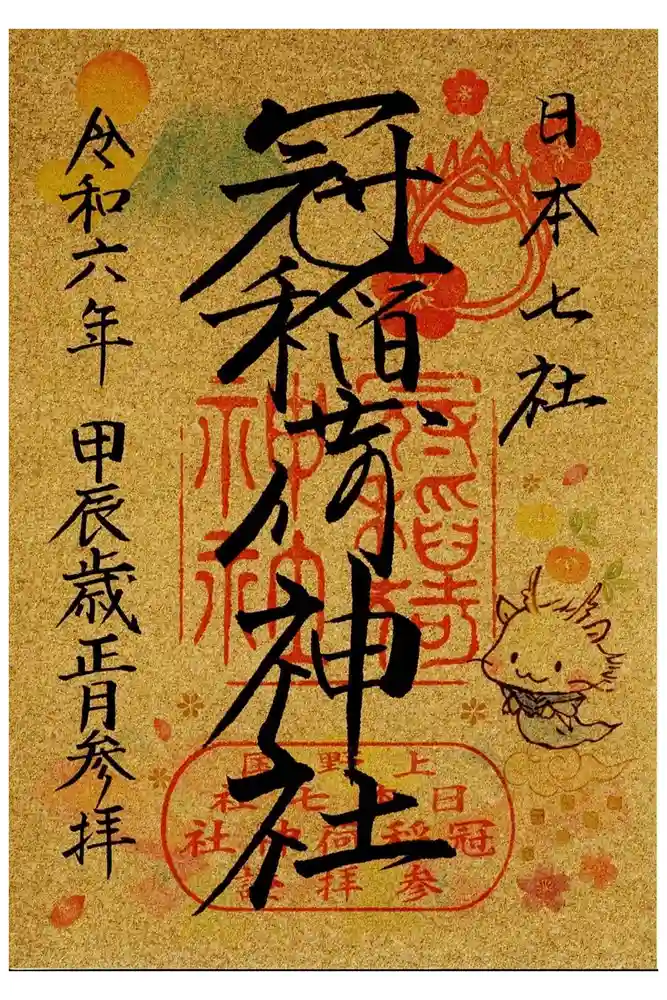 日本七社
冠稲荷神社
令和六年 甲辰歳正月参拝
冠稲荷神社
上野国
日本七社
冠稲荷神社
参拝證